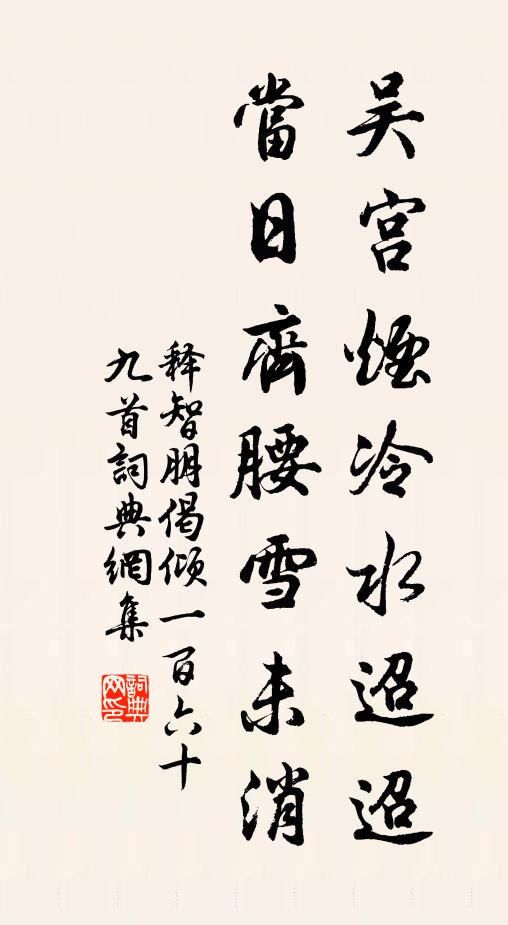 吴宫煙冷水迢迢
當日齊腰雪未消
释智朋偈倾一百六十
九首詞典網集
詞典
网印